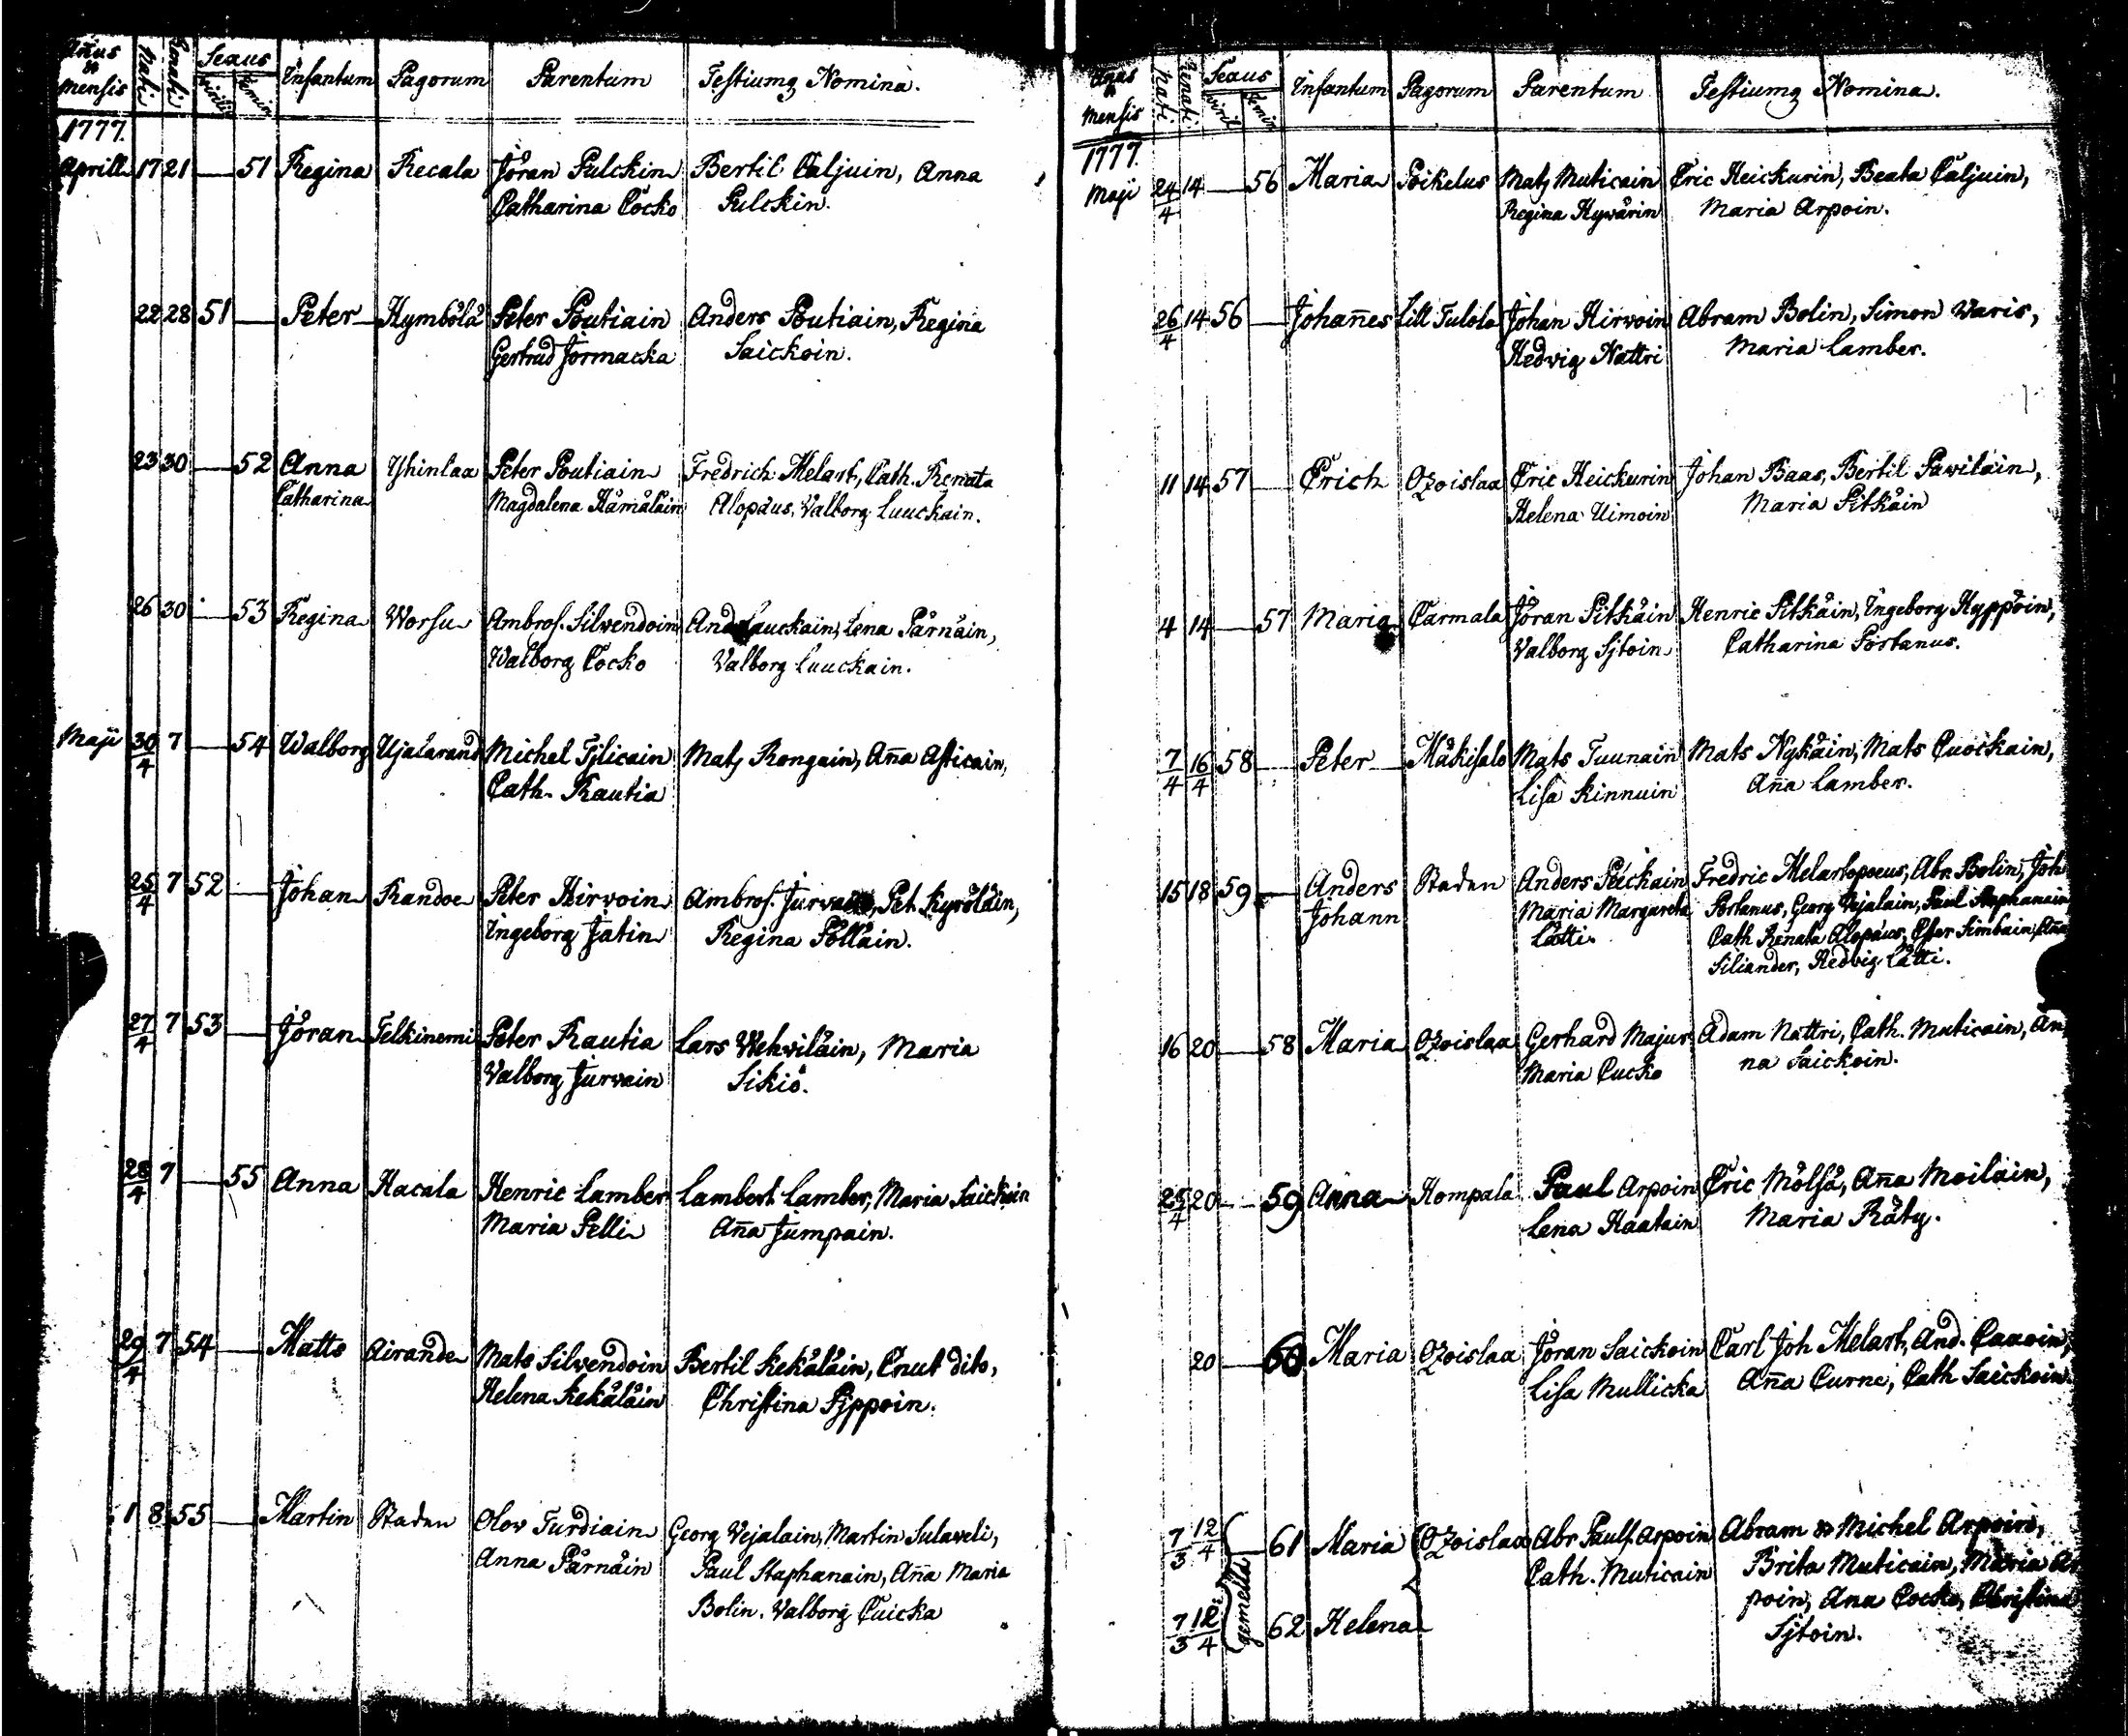 Anus & Mensis Nati Renati Sexus viril. Femin. Infantum Pagorum Parentum Testiumq Nomina.
1777.
Aprill 17 21 — 51 Regina Recala Jöran Pulckin Bertil Caljuin, Anna
Catharina Cocko Pulckin.
22 28 51 — Peter Hymbölä Peter Poutiain Anders Poutiain, Regina
Gertrud Jormacka Saickoin.
23 30 — 52 Anna Yhinlax Peter Poutiain Fredrich Melart, Cath. Renata
Catharina Magdalena Hämäläin Alopäus, Valborg Luuckain.
26 30 — 53 Regina Worsu Ambros. Silvendoin And Lauckain, Lena Pärnäin,
Walborg Cocko Valborg Luuckain.
Maji 30/4 7 — 54 Walborg Ujalarand Michel Tjlicain Mats Rongain, Aña Asticain,
Cath. Rautia
25/4 7 52 — Johan Randoe Peter Hirvoin Ambros. Jurvain, Pet. Kyröläin,
Ingeborg Jatin Regina Pölläin.
27/4 7 53 — Jöran Telkinemi Peter Rautia Lars Wehviläin, Maria
Valborg Jurvain Sikiö.
28/4 7 — 55 Anna Hacala Henric Lamber Lambert Lamber, Maria Saickoin
Maria Pelli Aña Jumpain.
29/4 7 54 — Matts Airande Mats Silvendoin Bertil Kekäläin, Cnut dito,
Helena Kekäläin Christina Pjppoin.
1 8 55 — Martin Staden Olov Turdiain Georg Vejalain, Martin Sulaveli,
Anna Pärnäin Paul Staphanain, Aña Maria
Bolin. Valborg Cuicka
Anus & Mensis Nati Renati Sexus viril Femin Infantum Pagorum Parentum Testiumq Nomina.
1777.
Maji 24/4 14 — 56 Maria Poikelus Mats Muticain Eric Heickurin, Beata Caljuin,
Regina Hywärin Maria Arpoin.
26/4 14 56 — Johañes Lill Tulola Johan Hirvoin Abram Bolin, Simon Waris,
Hedvig Nättri Maria Lamber.
11 14 57 — Erich Otzoislax Eric Heickurin Johan Baas, Bertil Pavilain,
Helena Uimoin Maria Pitkäin
4 14 — 57 Maria Carmala Jöran Pitkäin Henric Pitkäin, Ingeborg Hyppöin,
Valborg Sjtoin Catharina Portanus.
7/4 16/4 58 — Peter Mäkisalo Mats Tuunain Mats Nykäin, Mats Cuockain,
Lisa Kinnuin Aña Lamber.
15 18 59 — Anders Staden Anders Päickain Fredric Melartopoeus, Abr. Bolin, Joh
Johann Maria Margareta Portanus, Georg Vejalain, Paul Staphanain
Lätti. Cath Renata Alopäus, Ester Simbain, Aña
Siliander, Hedvig Lätti.
16 20 — 58 Maria Otzoislax Gerhard Majur Adam Nättri, Cath. Muticain, An
Maria Cucko na Saickoin.
25/4 20 — 59 Anna Kompala Paul Arpoin Eric Mölsä, Aña Moilain,
Lena Haatain Maria Räty.
20 — 60 Maria Otzoislax Jöran Saickoin Carl Joh Melart, And. Caxoin,
Lisa Mullicka Aña Curne, Cath Saickoin.
7/3 12/4 — 61 Maria Otzoislax Abr Paulss. Arpoin Abram & Michel Arpoin,
gemelli Cath. Muticain Brita Muticain, Maria Ar
poin, Ana Cocko, Christina
7/3 12/4 62 Helena Sjtoin.